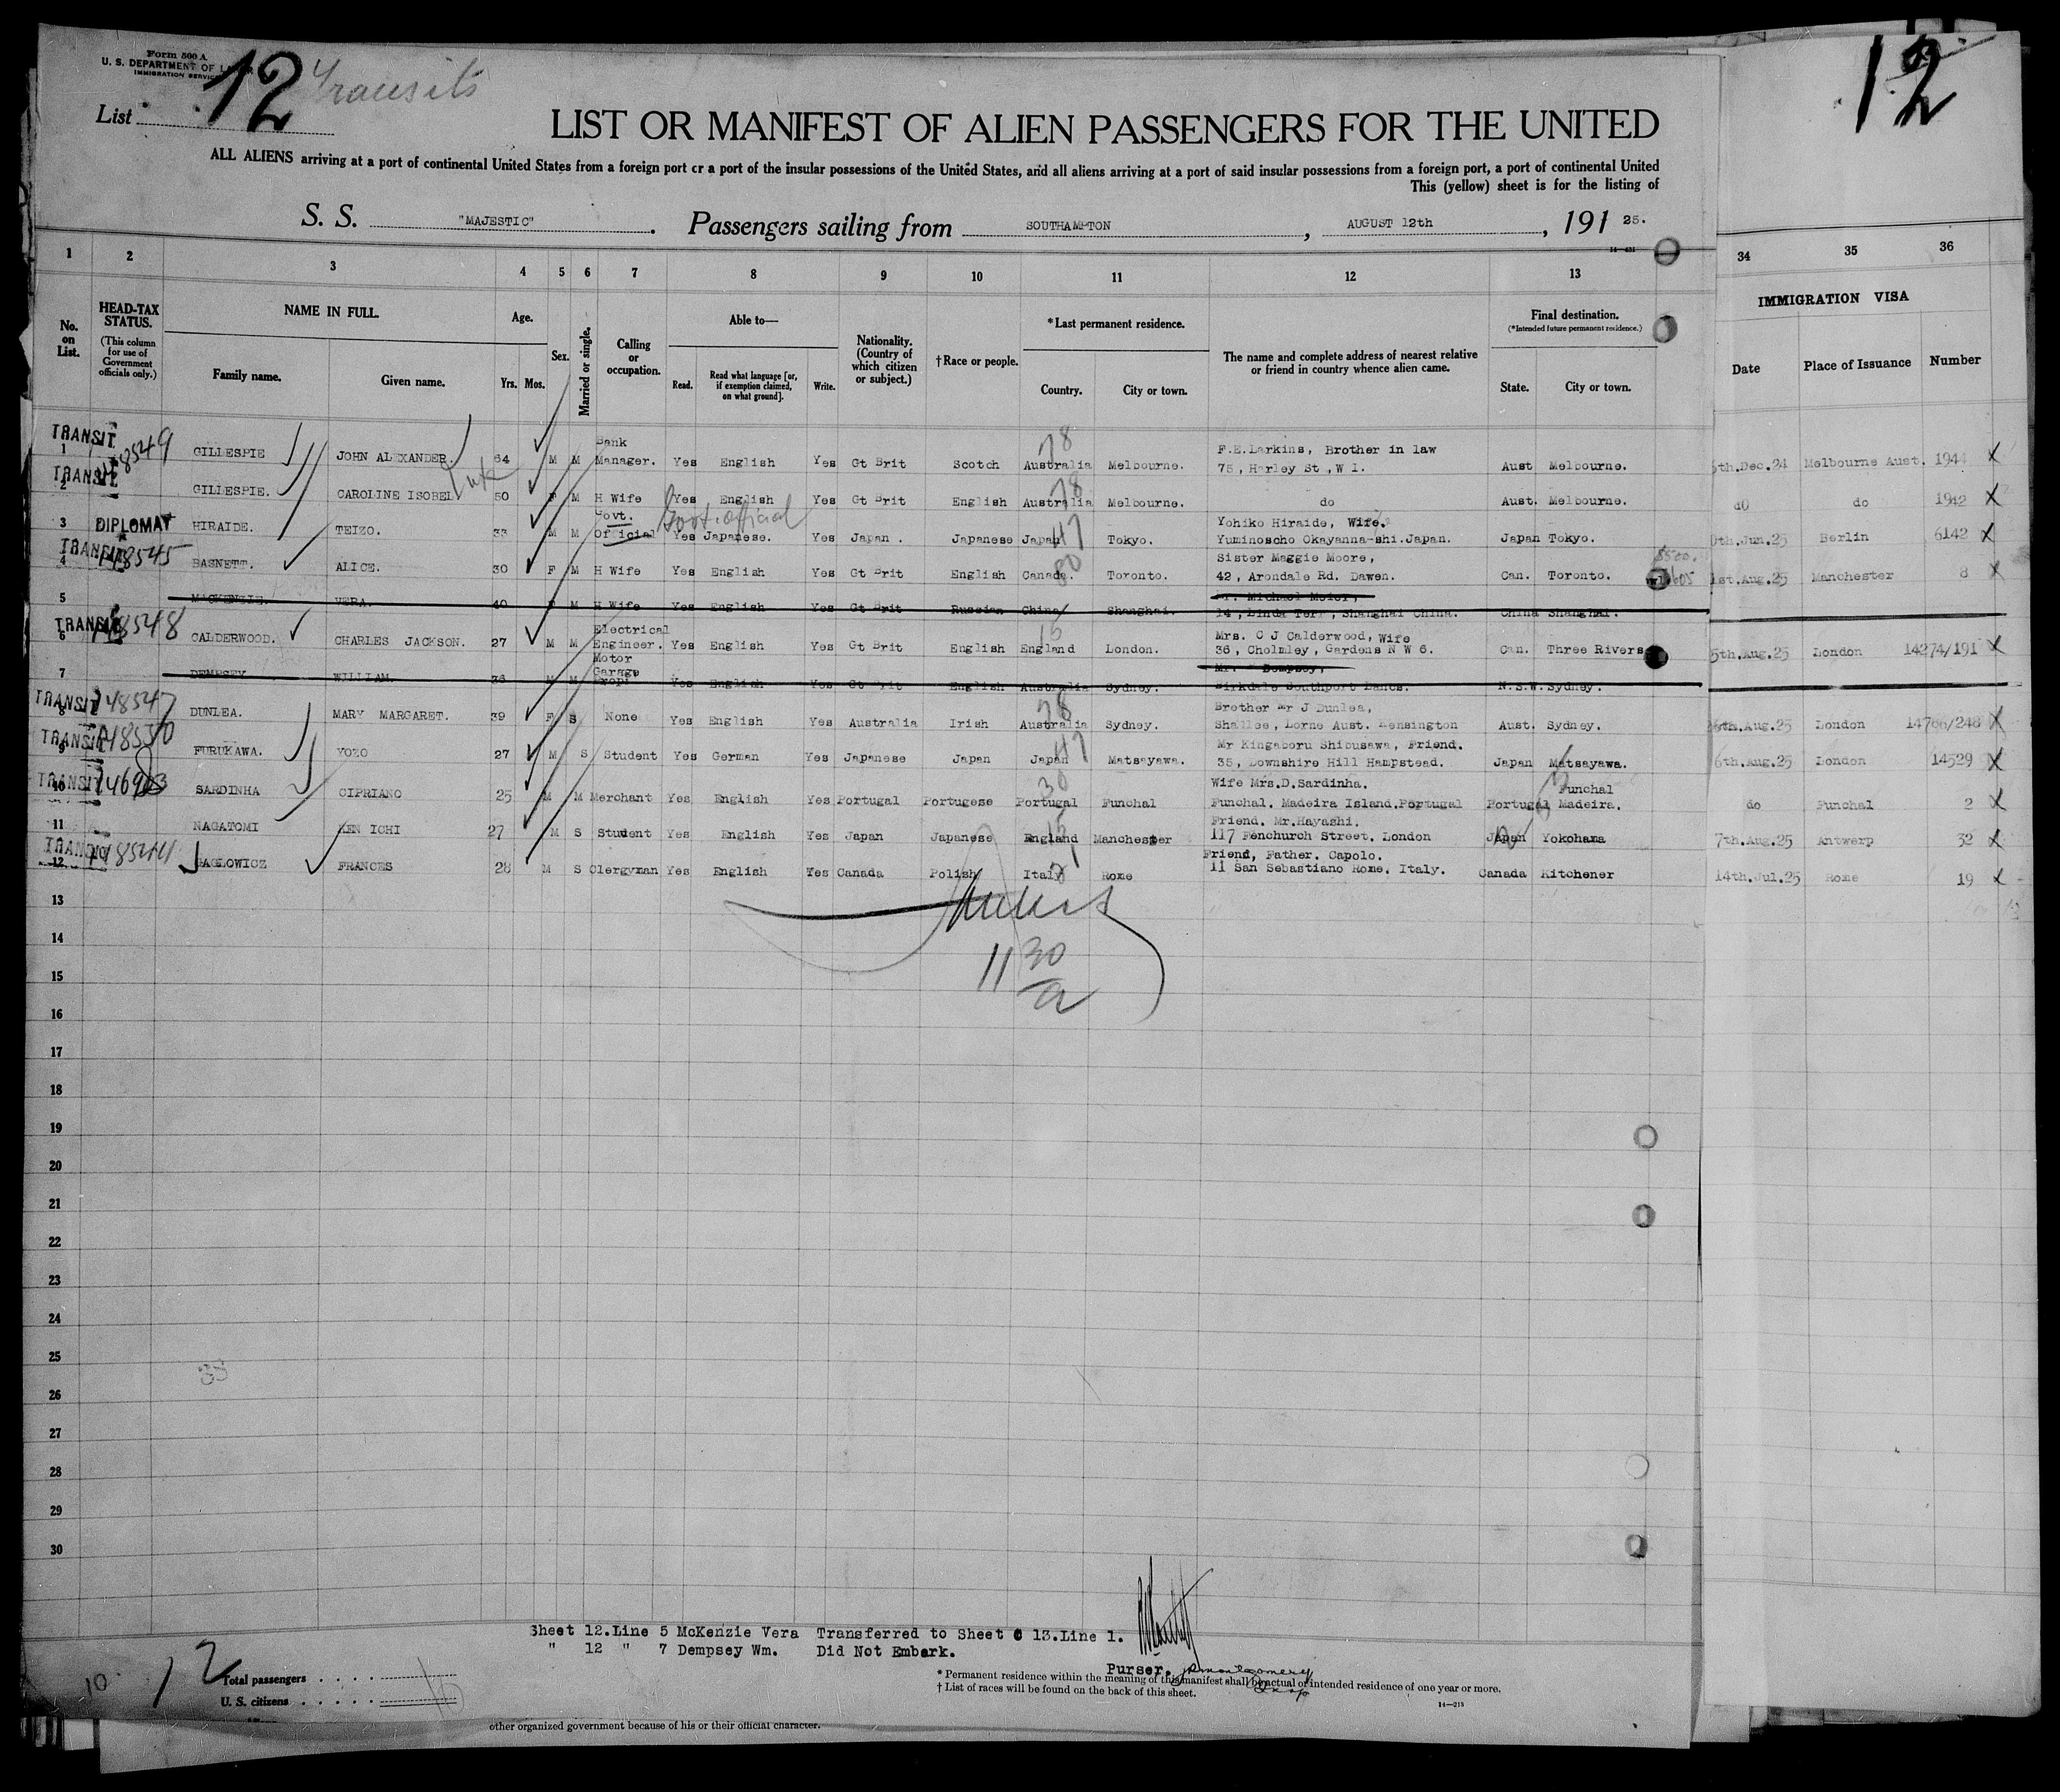 Form 500 A
U. S. DEPARTMENT OF LABOR
IMMIGRATION SERVICE
List 12 Transits
12
LIST OR MANIFEST OF ALIEN PASSENGERS FOR THE UNITED
ALL ALIENS arriving at a port of continental United States from a foreign port or a port of the insular possessions of the United States, and all aliens arriving at a port of said insular possessions from a foreign port, a port of continental United
This (yellow) sheet is for the listing of
S. S. "MAJESTIC". Passengers sailing from SOUTHAMPTON, AUGUST 12th, 191 25.
1 2 3 4 5 6 7 8 9 10 11 12 13 34 35 36
No. on List.
HEAD-TAX STATUS.
(This column for use of Government officials only.)
NAME IN FULL.
Family name. Given name.
Age.
Yrs. Mos.
Sex.
Married or single.
Calling or occupation.
Able to—
Read. Read what language [or, if exemption claimed, on what ground]. Write.
Nationality. (Country of which citizen or subject.)
†Race or people.
*Last permanent residence.
Country. City or town.
The name and complete address of nearest relative or friend in country whence alien came.
Final destination.
(*Intended future permanent residence.)
State. City or town.
IMMIGRATION VISA
Date Place of Issuance Number
TRANSIT 148549 1 GILLESPIE JOHN ALEXANDER. 64 M M Bank Manager. Yes English Yes Gt Brit Scotch Australia 78 Melbourne. F.E.Larkins, Brother in law 75, Harley St, W 1. Aust Melbourne. Dec.24 Melbourne Aust. 1944
TRANSIT 2 GILLESPIE. CAROLINE ISOBEL 50 F M H Wife Yes English Yes Gt Brit English Australia 78 Melbourne. do Aust. Melbourne. do do 1942
3 DIPLOMAT HIRAIDE. TEIZO. 33 M M Govt. Official Govt. official Yes Japanese. Yes Japan. Japanese Japan 47 Tokyo. Yohiko Hiraide, Wife. Yuminoscho Okayanna-shi.Japan. Japan Tokyo. Jun.25 Berlin 6142
TRANSIT 148545 4 BASNETT. ALICE. 30 F M H Wife Yes English Yes Gt Brit English Canada. 80 Toronto. Sister Maggie Moore, 42, Arondale Rd. Dawen. Can. Toronto. 1st.Aug.25 Manchester 8
5 MACKENZIE. VERA. 40 F M H Wife Yes English Yes Gt Brit Russian China Shanghai. Mr. Michael Meier, 14, Linda Terr, Shanghai China. China Shanghai.
TRANSIT 148548 6 CALDERWOOD. CHARLES JACKSON. 27 M M Electrical Engineer. Yes English Yes Gt Brit English England 15 London. Mrs. C J Calderwood, Wife 36, Cholmley, Gardens N W 6. Can. Three Rivers 5th.Aug.25 London 14274/191
7 DEMPSEY WILLIAM. 36 M M Motor Garage Propr Yes English Yes Gt Brit English Australia Sydney. Mr. Dempsey, Birkdale Southport Lancs. N.S.W. Sydney.
TRANSIT 148547 8 DUNLEA. MARY MARGARET. 39 F S None Yes English Yes Australia Irish Australia 78 Sydney. Brother Mr J Dunlea, Shallee, Lorne Aust. Kensington Aust. Sydney. Aug.25 London 14766/248
TRANSIT 148550 9 FURUKAWA. YOZO 27 M S Student Yes German Yes Japanese Japan Japan 47 Matsayawa. Mr Kingaboru Shibusawa, Friend. 35, Downshire Hill Hampstead. Japan Matsayawa. 6th.Aug.25 London 14529
TRANSIT 10 SARDINHA CIPRIANO 25 M M Merchant Yes English Yes Portugal Portugese Portugal 30 Funchal Wife Mrs.D.Sardinha. Funchal. Madeira Island.Portugal Portugal Funchal Madeira. do Funchal 2
11 NAGATOMI KEN ICHI 27 M S Student Yes English Yes Japan Japanese England 15 Manchester Friend. Mr.Hayashi. 117 Fenchurch Street. London Japan Yokohama 7th.Aug.25 Antwerp 32
TRANSIT 148544 12 GAGLOWICZ FRANCES 28 M S Clergyman Yes English Yes Canada Polish Italy Rome Friend, Father. Capolo. 11 San Sebastiano Rome. Italy. Canada Kitchener 14th.Jul.25 Rome 19
13
14
11 30/a
15
16
17
18
19
20
21
22
23
24
25
26
27
28
29
30
Sheet 12.Line 5 McKenzie Vera Transferred to Sheet 13.Line 1.
" 12 " 7 Dempsey Wm. Did Not Embark.
Purser.
10 12
Total passengers
U. S. citizens
* Permanent residence within the meaning of this manifest shall be actual or intended residence of one year or more.
† List of races will be found on the back of this sheet.
14—213
other organized government because of his or their official character.